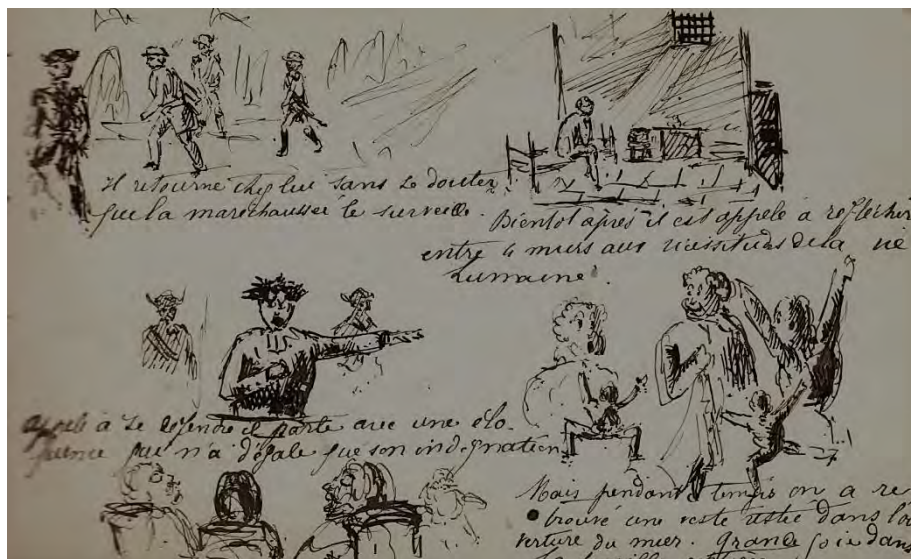 Il retourne chez lui sans se douter
que la marechaussée le surveille.
Bientot après il est appelé à reflechir
entre 4 murs aux vicissitudes de la vie
humaine.
appelé à se defendre il parle avec une élo-
quence que n'a d'égale que son indignation
Mais pendant temps on a re
trouvé une veste restée dans l'ou
verture du mur. Grande joie dans